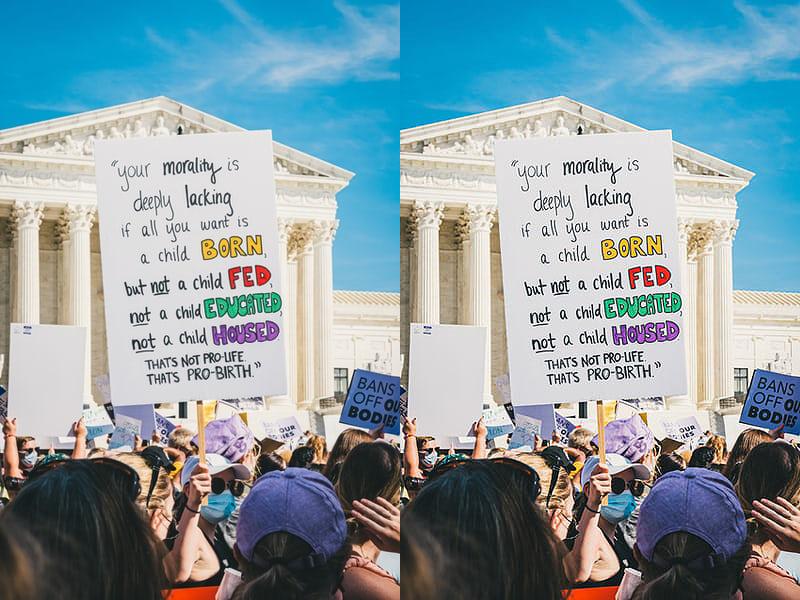 "your morality is
deeply lacking
if all you want is
a child BORN,
but not a child FED,
not a child EDUCATED,
not a child HOUSED
THAT'S NOT PRO-LIFE.
THAT'S PRO-BIRTH."
BANS
OFF OU
BODIES
OUR
"your morality is
deeply lacking
if all you want is
a child BORN,
but not a child FED,
not a child EDUCATED,
not a child HOUSED
THAT'S NOT PRO-LIFE.
THAT'S PRO-BIRTH."
BANS
OFF OU
BODIES
OUR